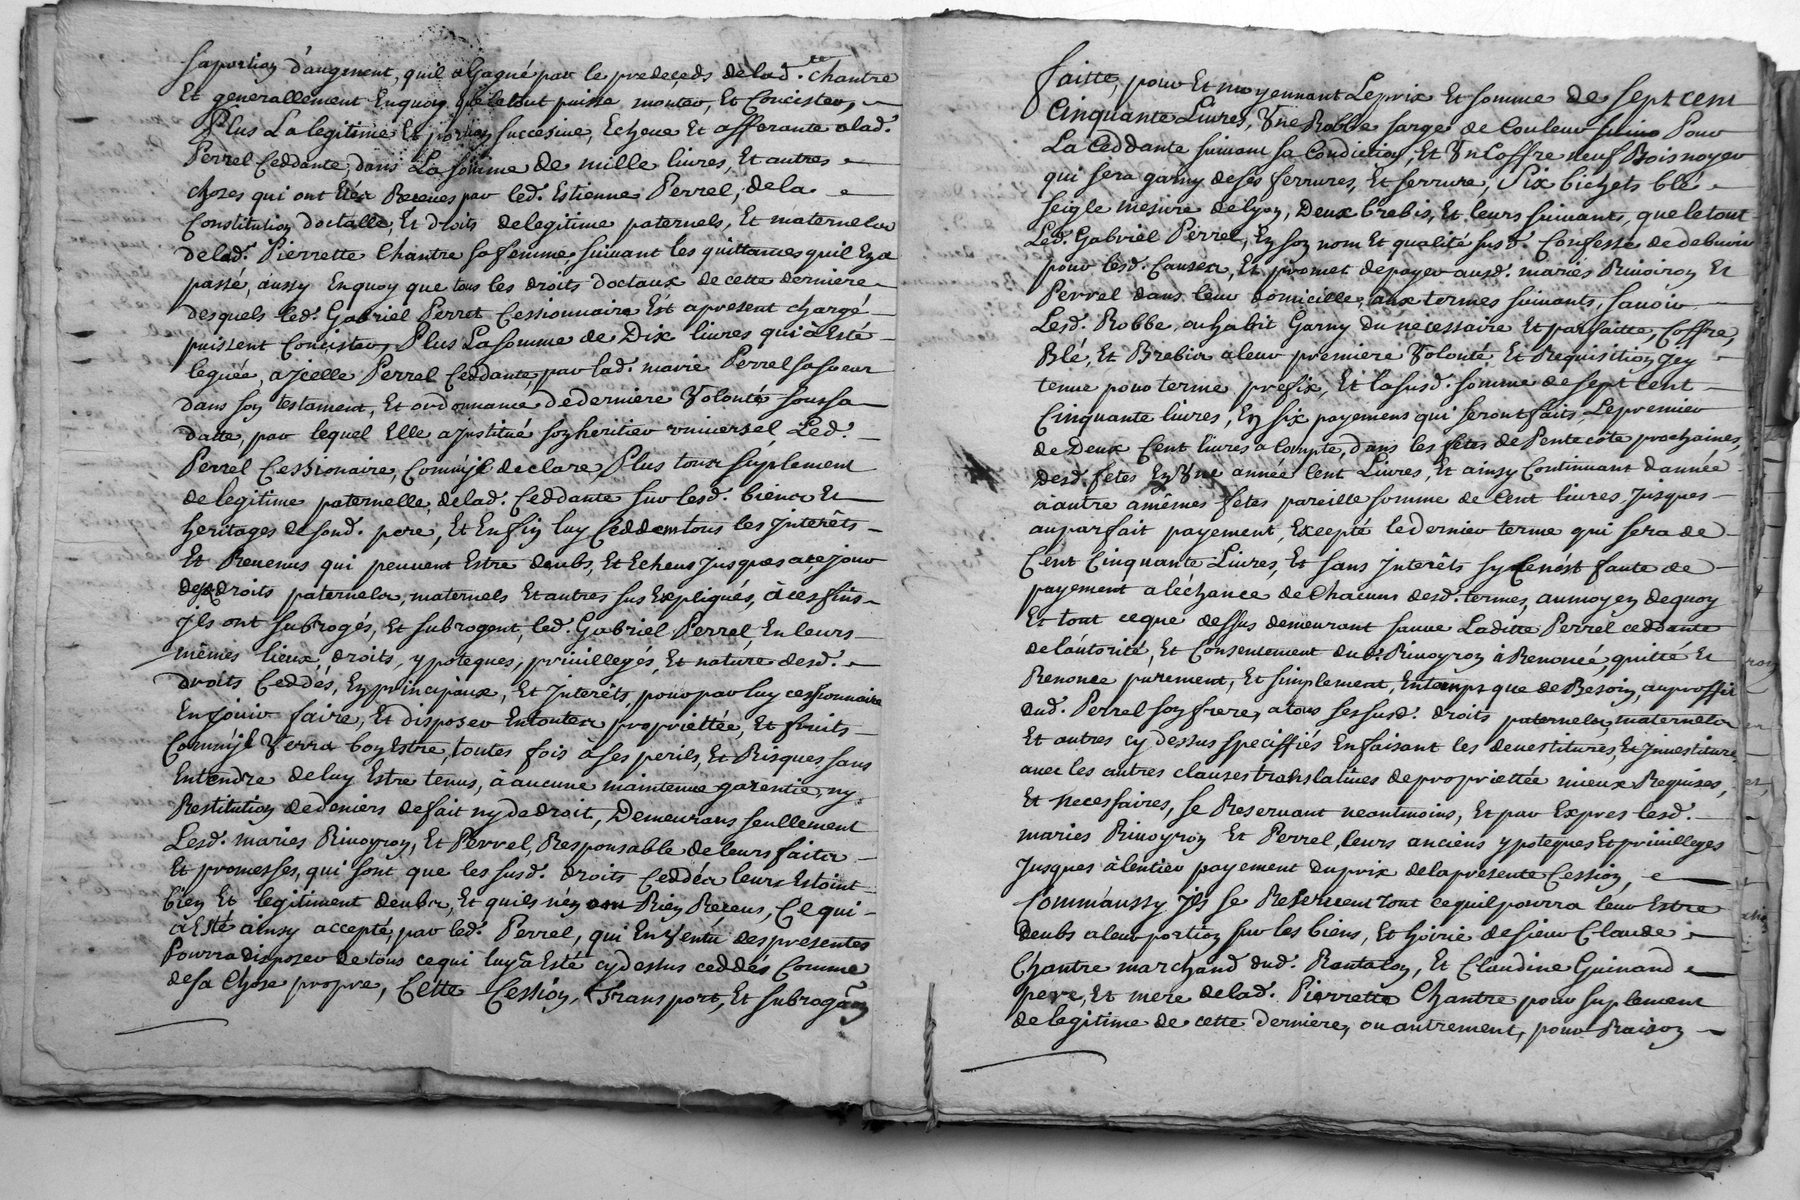 sa portion d'augment, quil a Gagné par le predeceds de lad.te Chantre
Et generallement Enquoy que letout puisse monter, Et Concister,
Plus La legitime Et portion succesive, Echeue Et afferante a lad.
Perrel Ceddante, dans La somme de mille livres, Et autres
choses qui ont Etéz Receues par led. Estienne Perrel, de la
Constitution doctalle, Et droits de legitime paternels, Et maternelz
delad. Pierrette Chantre sa femme, suivant les quittances quil En a
passé, aussy Enquoy que tous les droits doctaux de cette derniere
desquels led. Gabriel Perret Cessionnaire Est apresent chargé
puissent Concister, Plus La somme de Dix livres qui a Esté
leguée, a Jcelle Perrel Ceddante, par lad. marie Perrel sa soeur
dans son testament, Et ordonnance de derniere Volonté sous sa
datte, par lequel Elle a Jnstitué son heritier universel, Led.
Perrel Cessionaire, Comm'jl declare, Plus tous suplement
de legitime paternelle, delad. Ceddante sur lesd. biens Et
heritages de sond. pere, Et Enfin luy Ceddent tous les Jnterêts
Et Revenus qui peuvent Estre deubs, Et Echeus Jusques a ce jour
desd. droits paternels, maternels Et autres sus Expliqués, à ces fins
Jls ont subrogés, Et subrogent, led. Gabriel Perrel, En leurs
mêmes lieux, droits, ypoteques, privilleges, Et nature desd.
droits Ceddés, En principaux, Et Jnterêts, pour par luy cessionnaire
En jouir faire, Et disposer En toutes propriettée, Et fruits
Comm'jl Verra bon Estre, toutes fois à ses perils, Et Risques, sans
Entendre de luy Estre tenus, à aucune maintenue garentie, ny
Restitution de deniers de fait ny de droit, Demeurans seullement
Lesd. mariés Rivoyron, Et Perrel, Responsable de leurs faits
Et promesses, qui sont que les susd. droits Ceddés leurs Estoint
bien Et legitiment deubs, Et quils n'en ont Rien Receus, Ce qui
à Esté ainsy accepté, par led. Perrel, qui En Vertu des presentes
Pourra disposer de tous ce qui luy a Esté cy dessus ceddés Comme
de sa Chose propre, Cette Cession, Transport, Et subrogãon
faitte, pour Et moyennant Le prix Et somme de sept cent
Cinquante Livres, Vne Robbe sarge de Couleur Pour
La Ceddante suivant sa Condition, Et Vn Coffre neuf Bois noyer
qui sera garny de ses ferrures, Et serrure, Six bichets blé
seigle mesure de lyon, Deux brebis, Et leurs suivants, que le tout
Led. Gabriel Perrel, En son nom Et qualité susd. Confesse de debvoir
pour lesd. Causes, Et promet de payer ausd. mariés Rivoiron Et
Perrel dans leur domicille, aux termes suivants, savoir
Lesd. Robbe, ou habit Garny du necessaire Et parfaitte, Coffre,
Blé, Et Brebis a leur premiere Volonté, Et Requisition Jcy
tenue pour terme prefix, Et la susd. somme de sept Cent
Cinquante livres, En six payemens qui seront faits, Le premier
de Deux Cent livres a Compte, dans les fêtes de Pentecôte prochaines,
desd. fêtes En Vne année Cent Livres, Et ainsy Continuant d'année
à autre a mêmes fetes pareille somme de Cent livres Jusques
au parfait payement, Excepté le dernier terme qui sera de
Cent Cinquante Livres, Et sans Jnterêts sy Ce n'ést faute de
payement a l'échéance de Chacuns desd. termes, au moyen de quoy
Et tout ce que dessus demeurant sauve Laditte Perrel ceddante
de l'autorité, Et Consentement dud. Rivoyron à Renoncé, quitté Et
Renonce purement, Et simplement, En temps que de Besoin, au proffit
dud. Perrel son frere, a tous ses susd. droits paternels, maternels
Et autres cy dessus speciffiés En faisant les devestitures, Et Jnvestiture
avec les autres clauses translatives de propriettée mieux Requises,
Et necessaires, se Reservant neantmoins, Et par Expres lesd.
mariés Rivoyron Et Perrel, leurs anciens ypoteques Et privilleges
Jusques à l'entier payement du prix de la presente Cession,
Comm'aussy Jls se Reservent tout ce quil pourra leur Estre
Deubs a leur portion sur les biens, Et hoirie de sieur Claude
Chantre marchand dud. Rontalon, Et Claudine Guinand
pere, Et mere delad. Pierrette Chantre pour suplement
de legitime de cette derniere, ou autrement, pour Raison